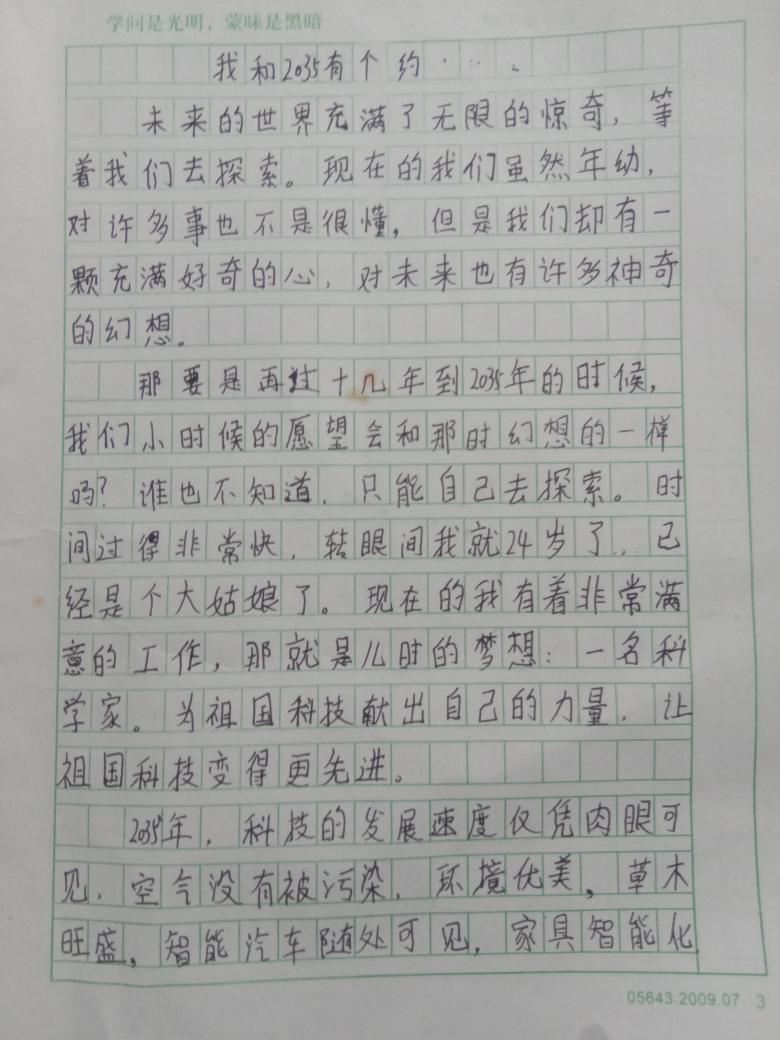 学问是光明，蒙昧是黑暗
我和2035有个约
未来的世界充满了无限的惊奇，等
着我们去探索。现在的我们虽然年幼，
对许多事也不是很懂，但是我们却有一
颗充满好奇的心，对未来也有许多神奇
的幻想。
那要是再过十几年到2035年的时候，
我们小时候的愿望会和那时幻想的一样
吗？谁也不知道，只能自己去探索。时
间过得非常快，转眼间我就24岁了，已
经是个大姑娘了。现在的我有着非常满
意的工作，那就是儿时的梦想：一名科
学家。为祖国科技献出自己的力量，让
祖国科技变得更先进。
2035年，科技的发展速度仅凭肉眼可
见，空气没有被污染，环境优美，草木
旺盛，智能汽车随处可见，家具智能化
05643.2009.07 3